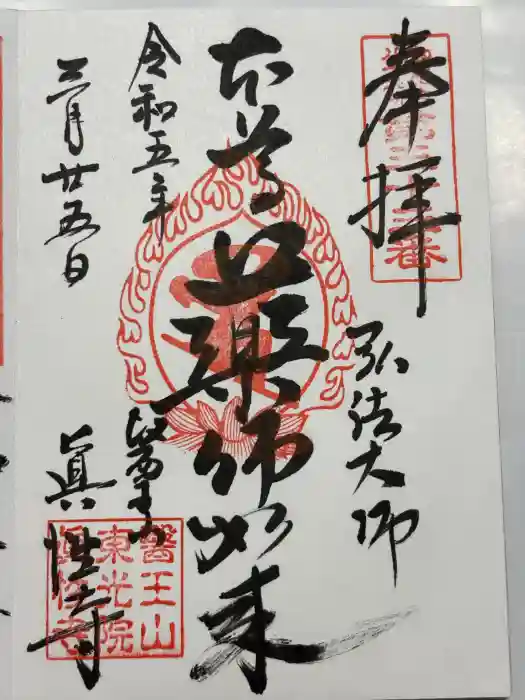 奉拝
弘法大師
本尊
薬師如来
令和五年
三月廿五日
眞性寺
醫王山
東光院
眞性寺